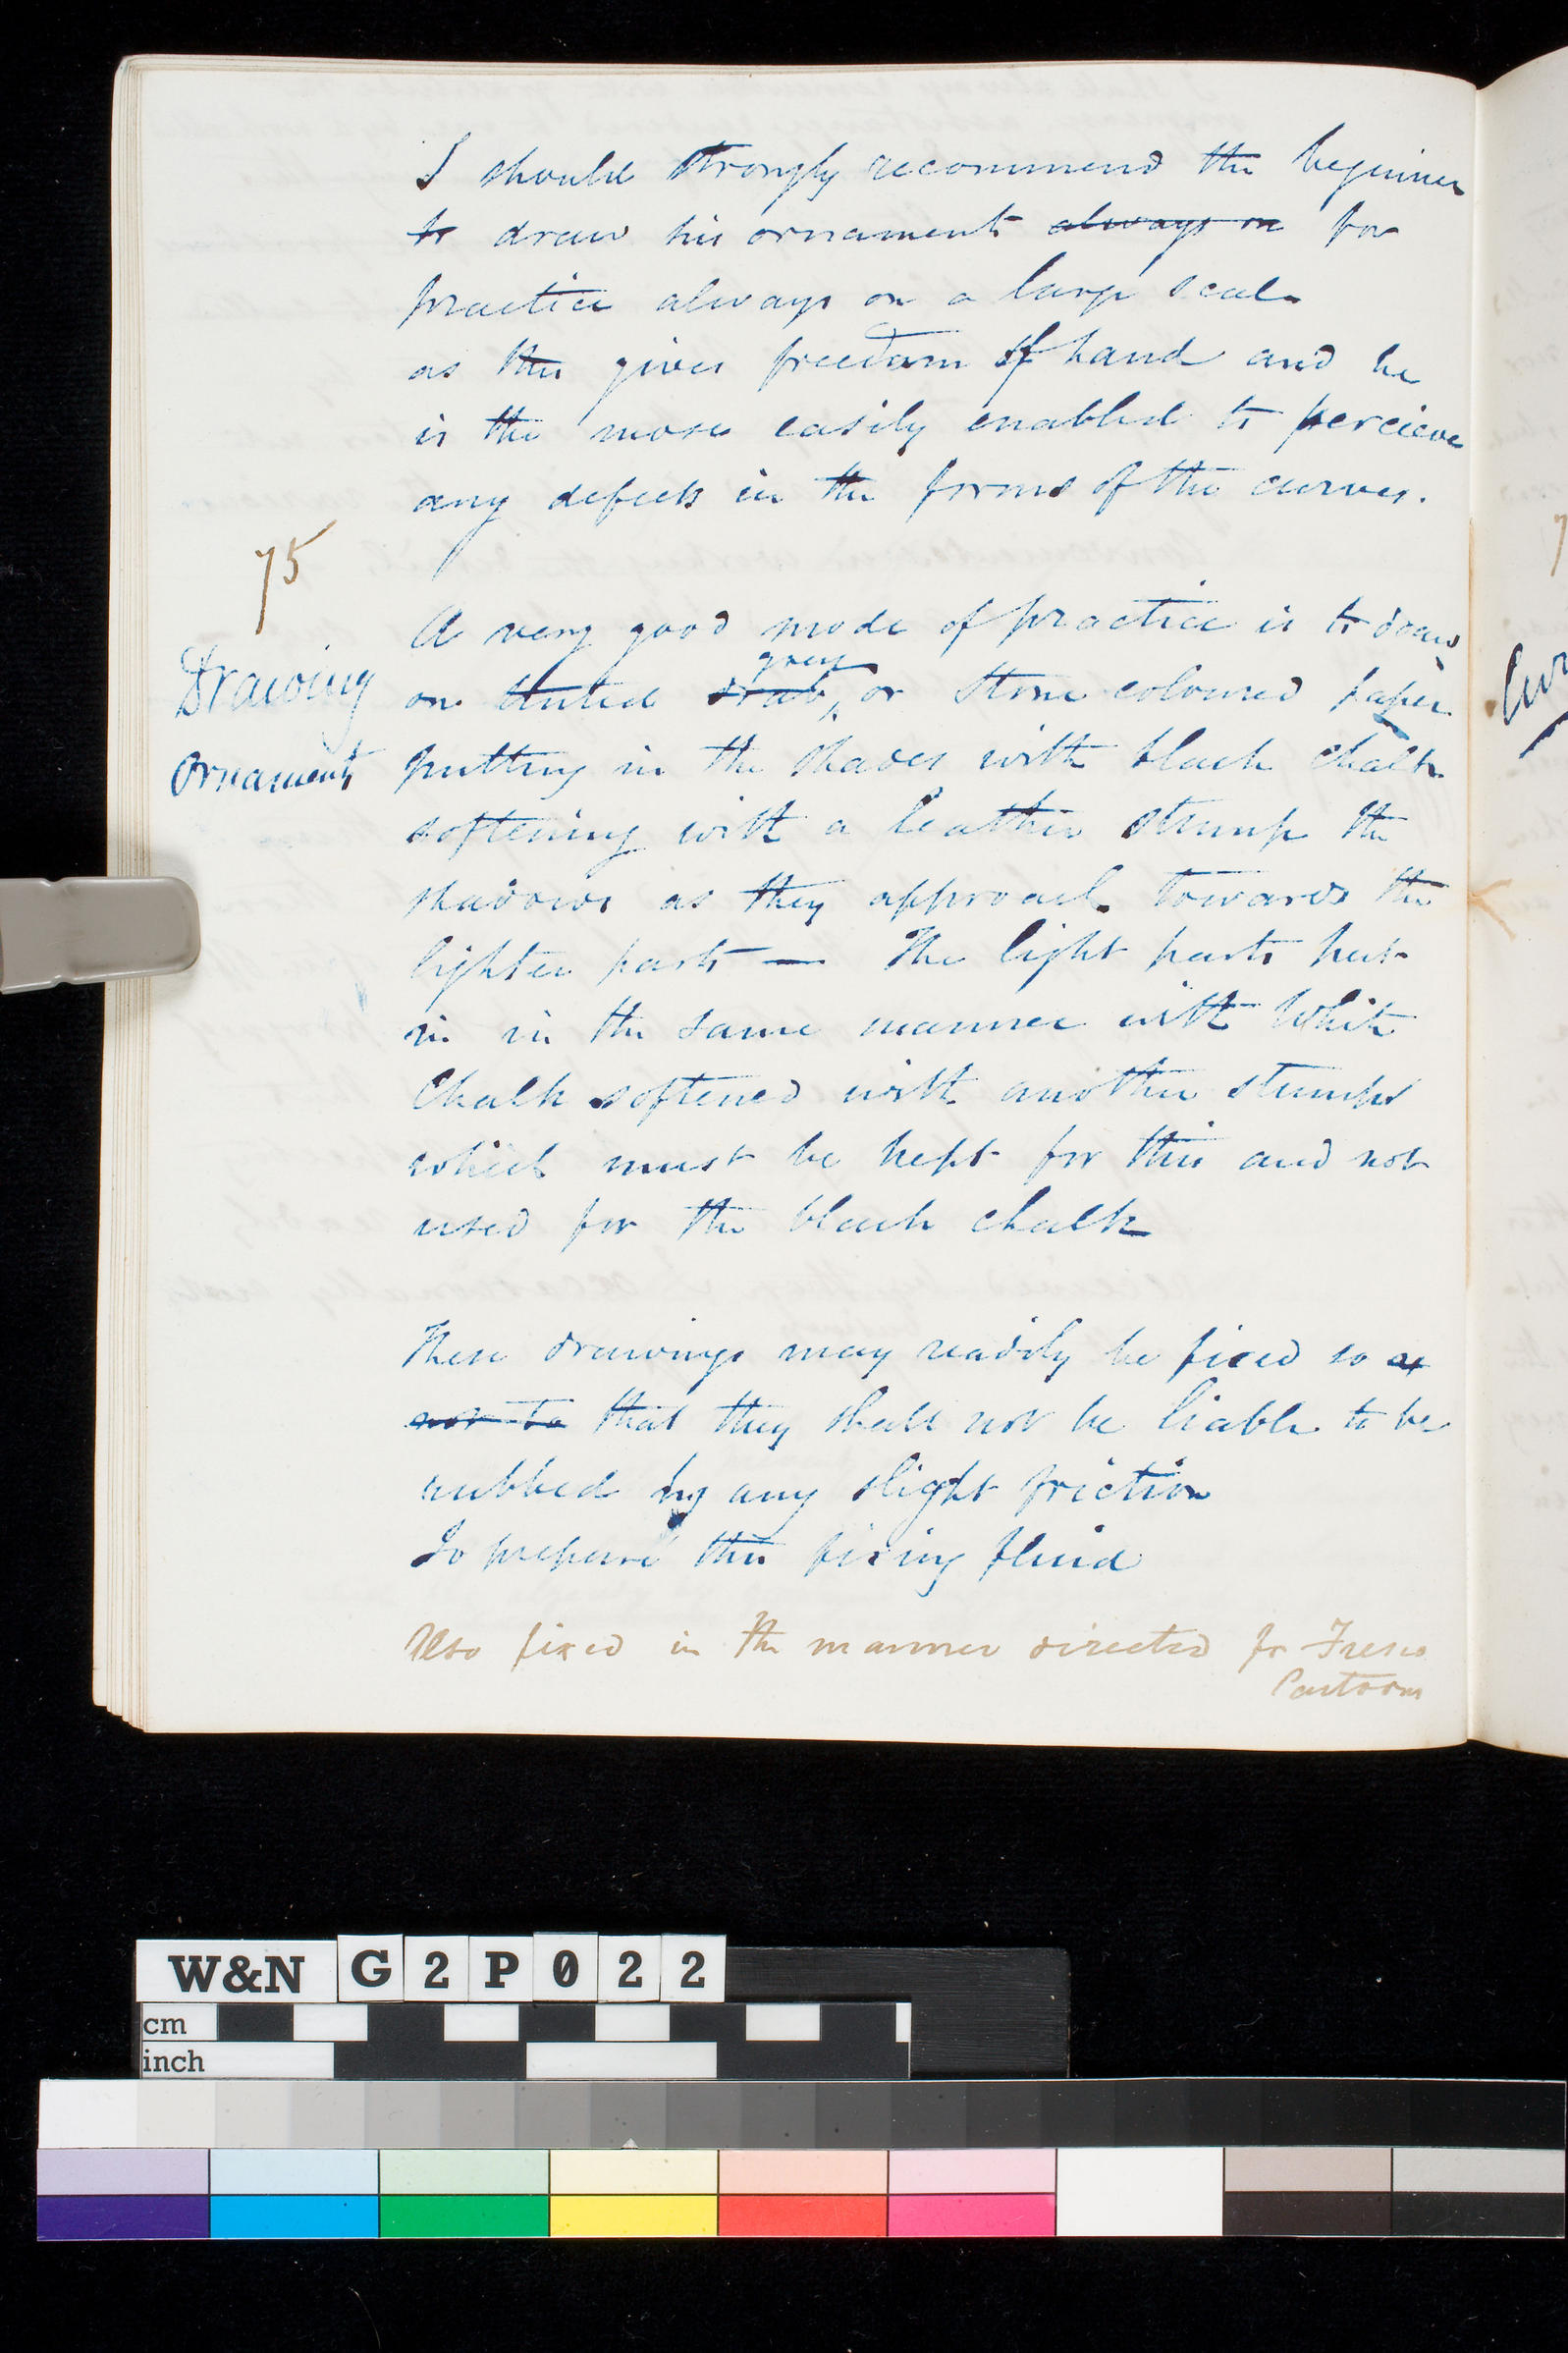 I should strongly recommend the beginner
to draw his ornament always on for
practice always on a large scale
as this gives freedom of hand and he
is the more easily enabled to percieve
any defects in the forms of the curves.
75
Drawing
Ornament
A very good mode of practice is to draw
grey
on tinted drab, or stone coloured paper
putting in the shades with black chalk
softening with a leather stump the
shadows as they approach towards the
lighter parts — The light parts put
in in the same manner with White
Chalk softened with another stump
which must be kept for this and not
used for the black chalk
These drawings may readily be fixed so as
not to that they shall not be liable to be
rubbed by any slight friction
To prepare this fixing fluid
Also fixed in the manner directed for Fresco
Cartoons
W&N G2P022
cm
inch